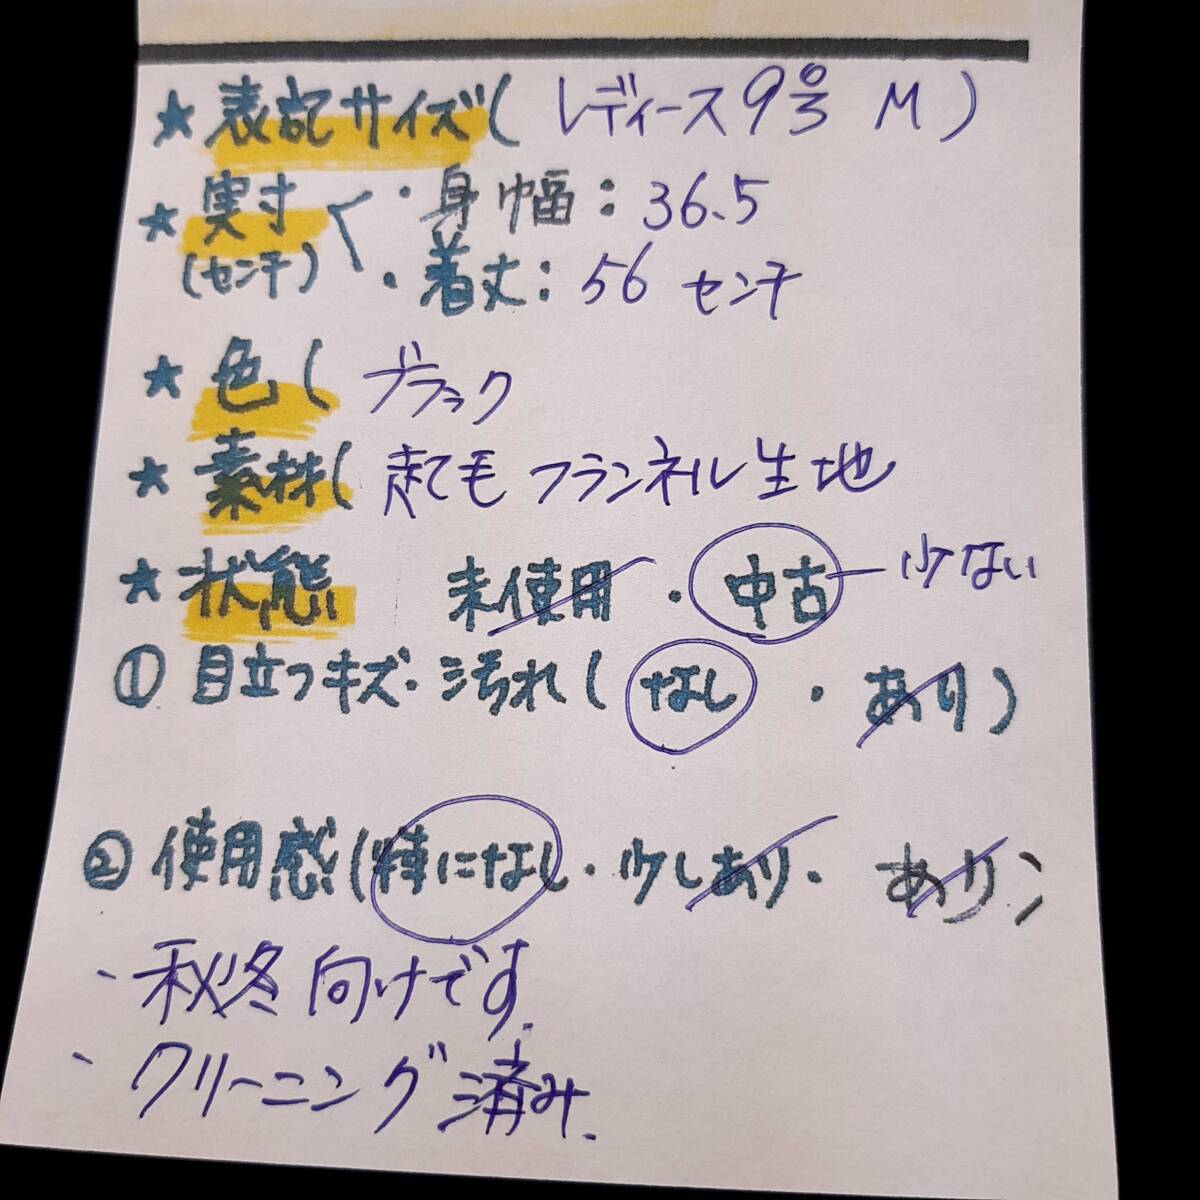 ★ 表記サイズ( レディース9号 M )
★ 実寸 ・身幅：36.5
(センチ) ・着丈：56 センチ
★ 色( ブラック
★ 素材( 起毛 フランネル生地
★ 状態 未使用・中古 少ない
① 目立つキズ・汚れ(なし・あり)
② 使用感(特になし・少しあり・あり)
、秋冬向けです.
、クリーニング済み.